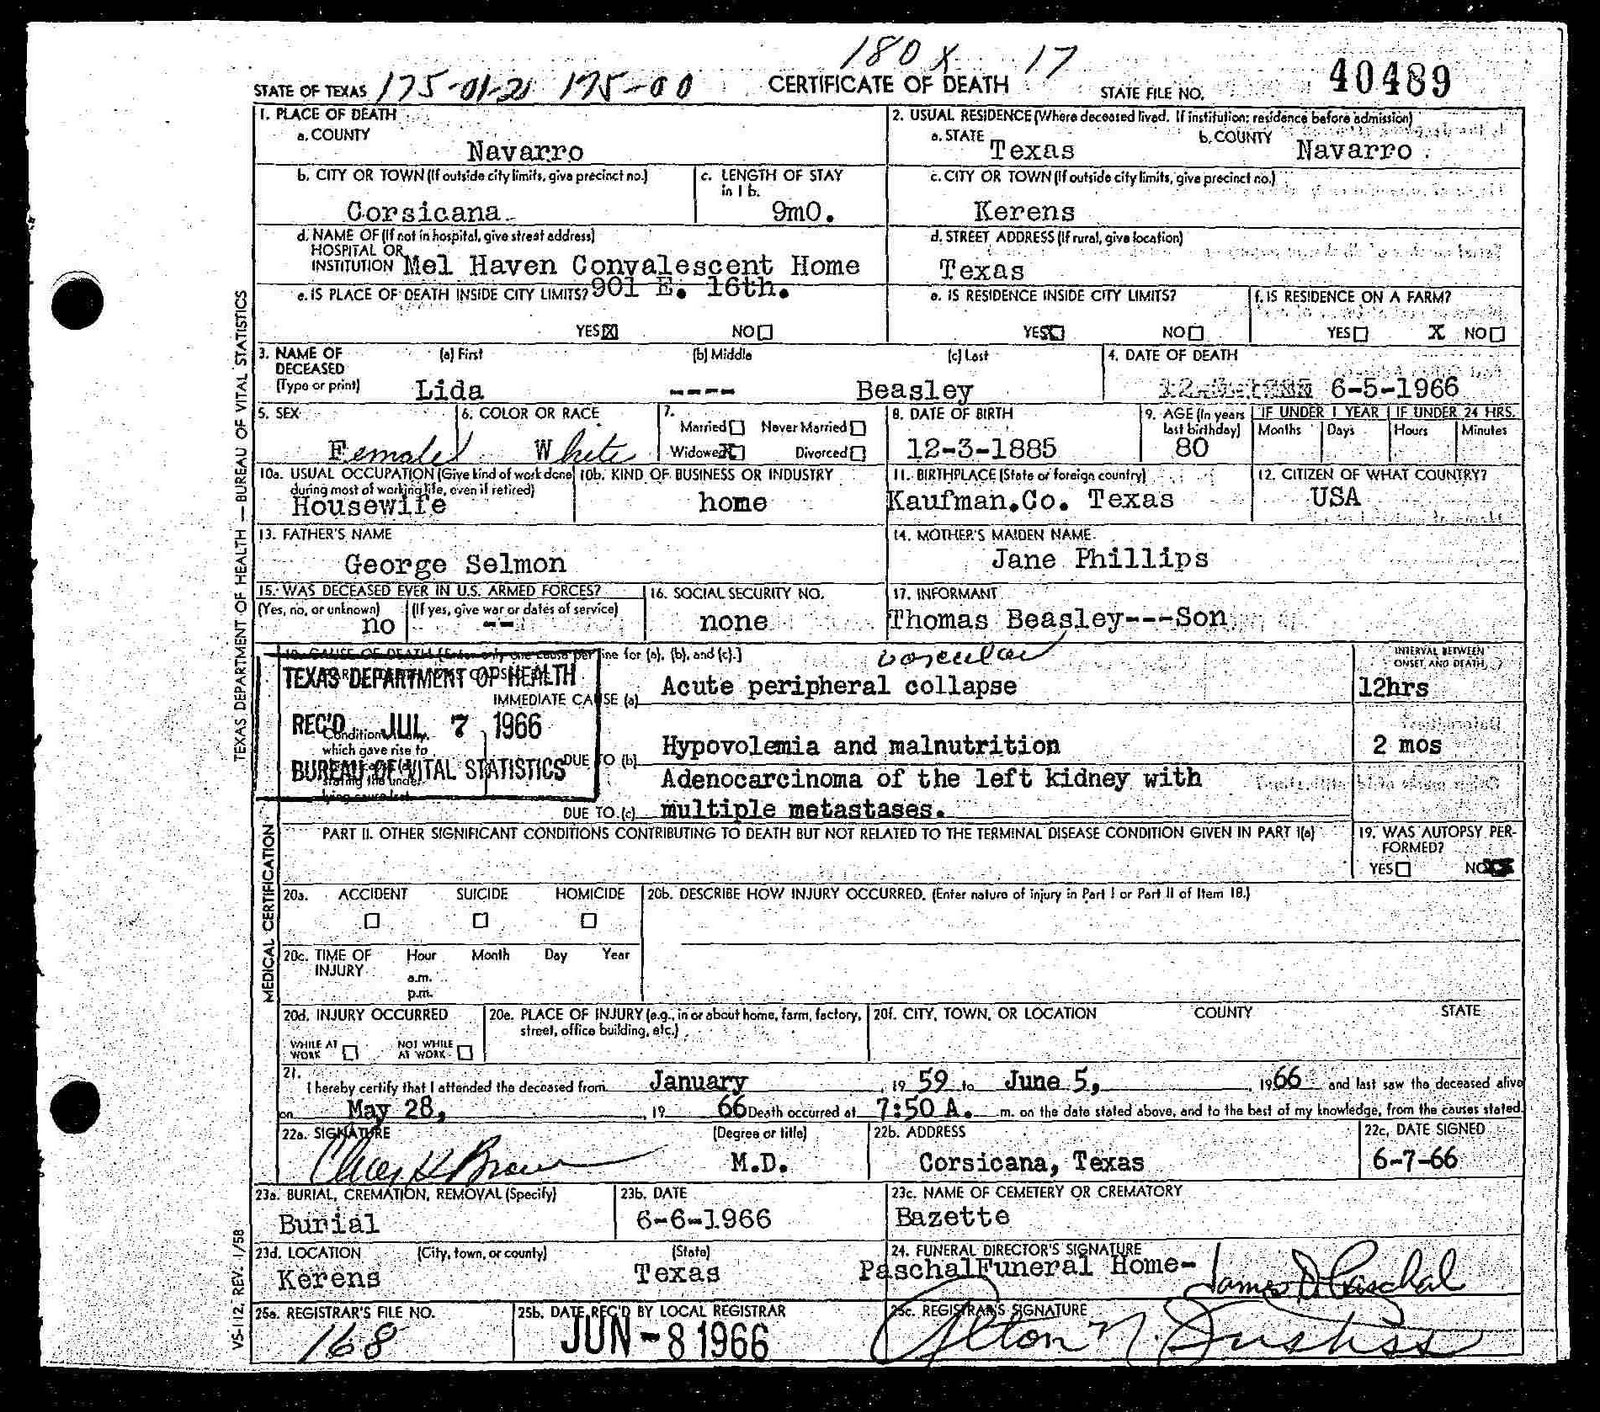 180X 17
STATE OF TEXAS 175-01-21 175-00 CERTIFICATE OF DEATH STATE FILE NO. 40489
1. PLACE OF DEATH
a. COUNTY
Navarro
2. USUAL RESIDENCE (Where deceased lived. If institution: residence before admission)
a. STATE Texas b. COUNTY Navarro
b. CITY OR TOWN (If outside city limits, give precinct no.)
Corsicana
c. LENGTH OF STAY
in 1 b.
9mO.
c. CITY OR TOWN (If outside city limits, give precinct no.)
Kerens
d. NAME OF (If not in hospital, give street address)
HOSPITAL OR
INSTITUTION Mel Haven Convalescent Home
d. STREET ADDRESS (If rural, give location)
Texas
e. IS PLACE OF DEATH INSIDE CITY LIMITS? 901 E. 16th.
YES X NO
e. IS RESIDENCE INSIDE CITY LIMITS?
YES X NO
f. IS RESIDENCE ON A FARM?
YES X NO
3. NAME OF DECEASED
(Type or print)
(a) First (b) Middle (c) Last
Lida ---- Beasley
4. DATE OF DEATH
6-5-1966
5. SEX
Female
6. COLOR OR RACE
White
7.
Married Never Married
Widowed X Divorced
8. DATE OF BIRTH
12-3-1885
9. AGE (In years last birthday)
80
IF UNDER 1 YEAR IF UNDER 24 HRS.
Months Days Hours Minutes
10a. USUAL OCCUPATION (Give kind of work done
during most of working life, even if retired)
Housewife
10b. KIND OF BUSINESS OR INDUSTRY
home
11. BIRTHPLACE (State or foreign country)
Kaufman.Co. Texas
12. CITIZEN OF WHAT COUNTRY?
USA
13. FATHER'S NAME
George Selmon
14. MOTHER'S MAIDEN NAME
Jane Phillips
15. WAS DECEASED EVER IN U.S. ARMED FORCES?
(Yes, no, or unknown) (If yes, give war or dates of service)
no --
16. SOCIAL SECURITY NO.
none
17. INFORMANT
Thomas Beasley---Son
18. CAUSE OF DEATH [Enter only one cause per line for (a), (b), and (c).]
INTERVAL BETWEEN
ONSET AND DEATH
TEXAS DEPARTMENT OF HEALTH
REC'D JUL 7 1966
BUREAU OF VITAL STATISTICS
vascular
IMMEDIATE CAUSE (a) Acute peripheral collapse 12hrs
Conditions
which gave rise to
stating the under-
lying cause last.
DUE TO (b) Hypovolemia and malnutrition 2 mos
Adenocarcinoma of the left kidney with
DUE TO (c) multiple metastases.
PART II. OTHER SIGNIFICANT CONDITIONS CONTRIBUTING TO DEATH BUT NOT RELATED TO THE TERMINAL DISEASE CONDITION GIVEN IN PART I(a)
19. WAS AUTOPSY PER-
FORMED?
YES NO
20a. ACCIDENT SUICIDE HOMICIDE
20b. DESCRIBE HOW INJURY OCCURRED. (Enter nature of injury in Part I or Part II of Item 18.)
20c. TIME OF INJURY Hour Month Day Year
a.m.
p.m.
20d. INJURY OCCURRED
WHILE AT WORK NOT WHILE AT WORK
20e. PLACE OF INJURY (e.g., in or about home, farm, factory,
street, office building, etc.)
20f. CITY, TOWN, OR LOCATION COUNTY STATE
21.
I hereby certify that I attended the deceased from January, 19 59 to June 5, 1966 and last saw the deceased alive
on May 28, 19 66 Death occurred at 7:50 A. m. on the date stated above, and to the best of my knowledge, from the causes stated.
22a. SIGNATURE (Degree or title)
M.D.
22b. ADDRESS
Corsicana, Texas
22c. DATE SIGNED
6-7-66
23a. BURIAL, CREMATION, REMOVAL (Specify)
Burial
23b. DATE
6-6-1966
23c. NAME OF CEMETERY OR CREMATORY
Bazette
23d. LOCATION (City, town, or county) (State)
Kerens Texas
24. FUNERAL DIRECTOR'S SIGNATURE
PaschalFuneral Home- James D. Paschal
25a. REGISTRAR'S FILE NO.
168
25b. DATE REC'D BY LOCAL REGISTRAR
JUN -8 1966
25c. REGISTRAR'S SIGNATURE
Alton N. Justiss
TEXAS DEPARTMENT OF HEALTH — BUREAU OF VITAL STATISTICS
MEDICAL CERTIFICATION
VS-112, REV. 1/58